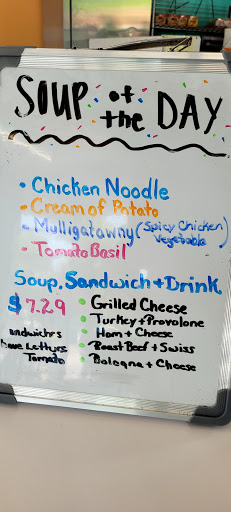 SOUP of the DAY
• Chicken Noodle
• Cream of Potato
• Mulligatawny (Spicy Chicken Vegetable)
• Tomato Basil
Soup, Sandwich + Drink
$7.29
• Grilled Cheese
• Turkey + Provolone
• Ham + Cheese
• Roast Beef + Swiss
• Bologna + Cheese
andwichrs
Have Letturs
Tomato